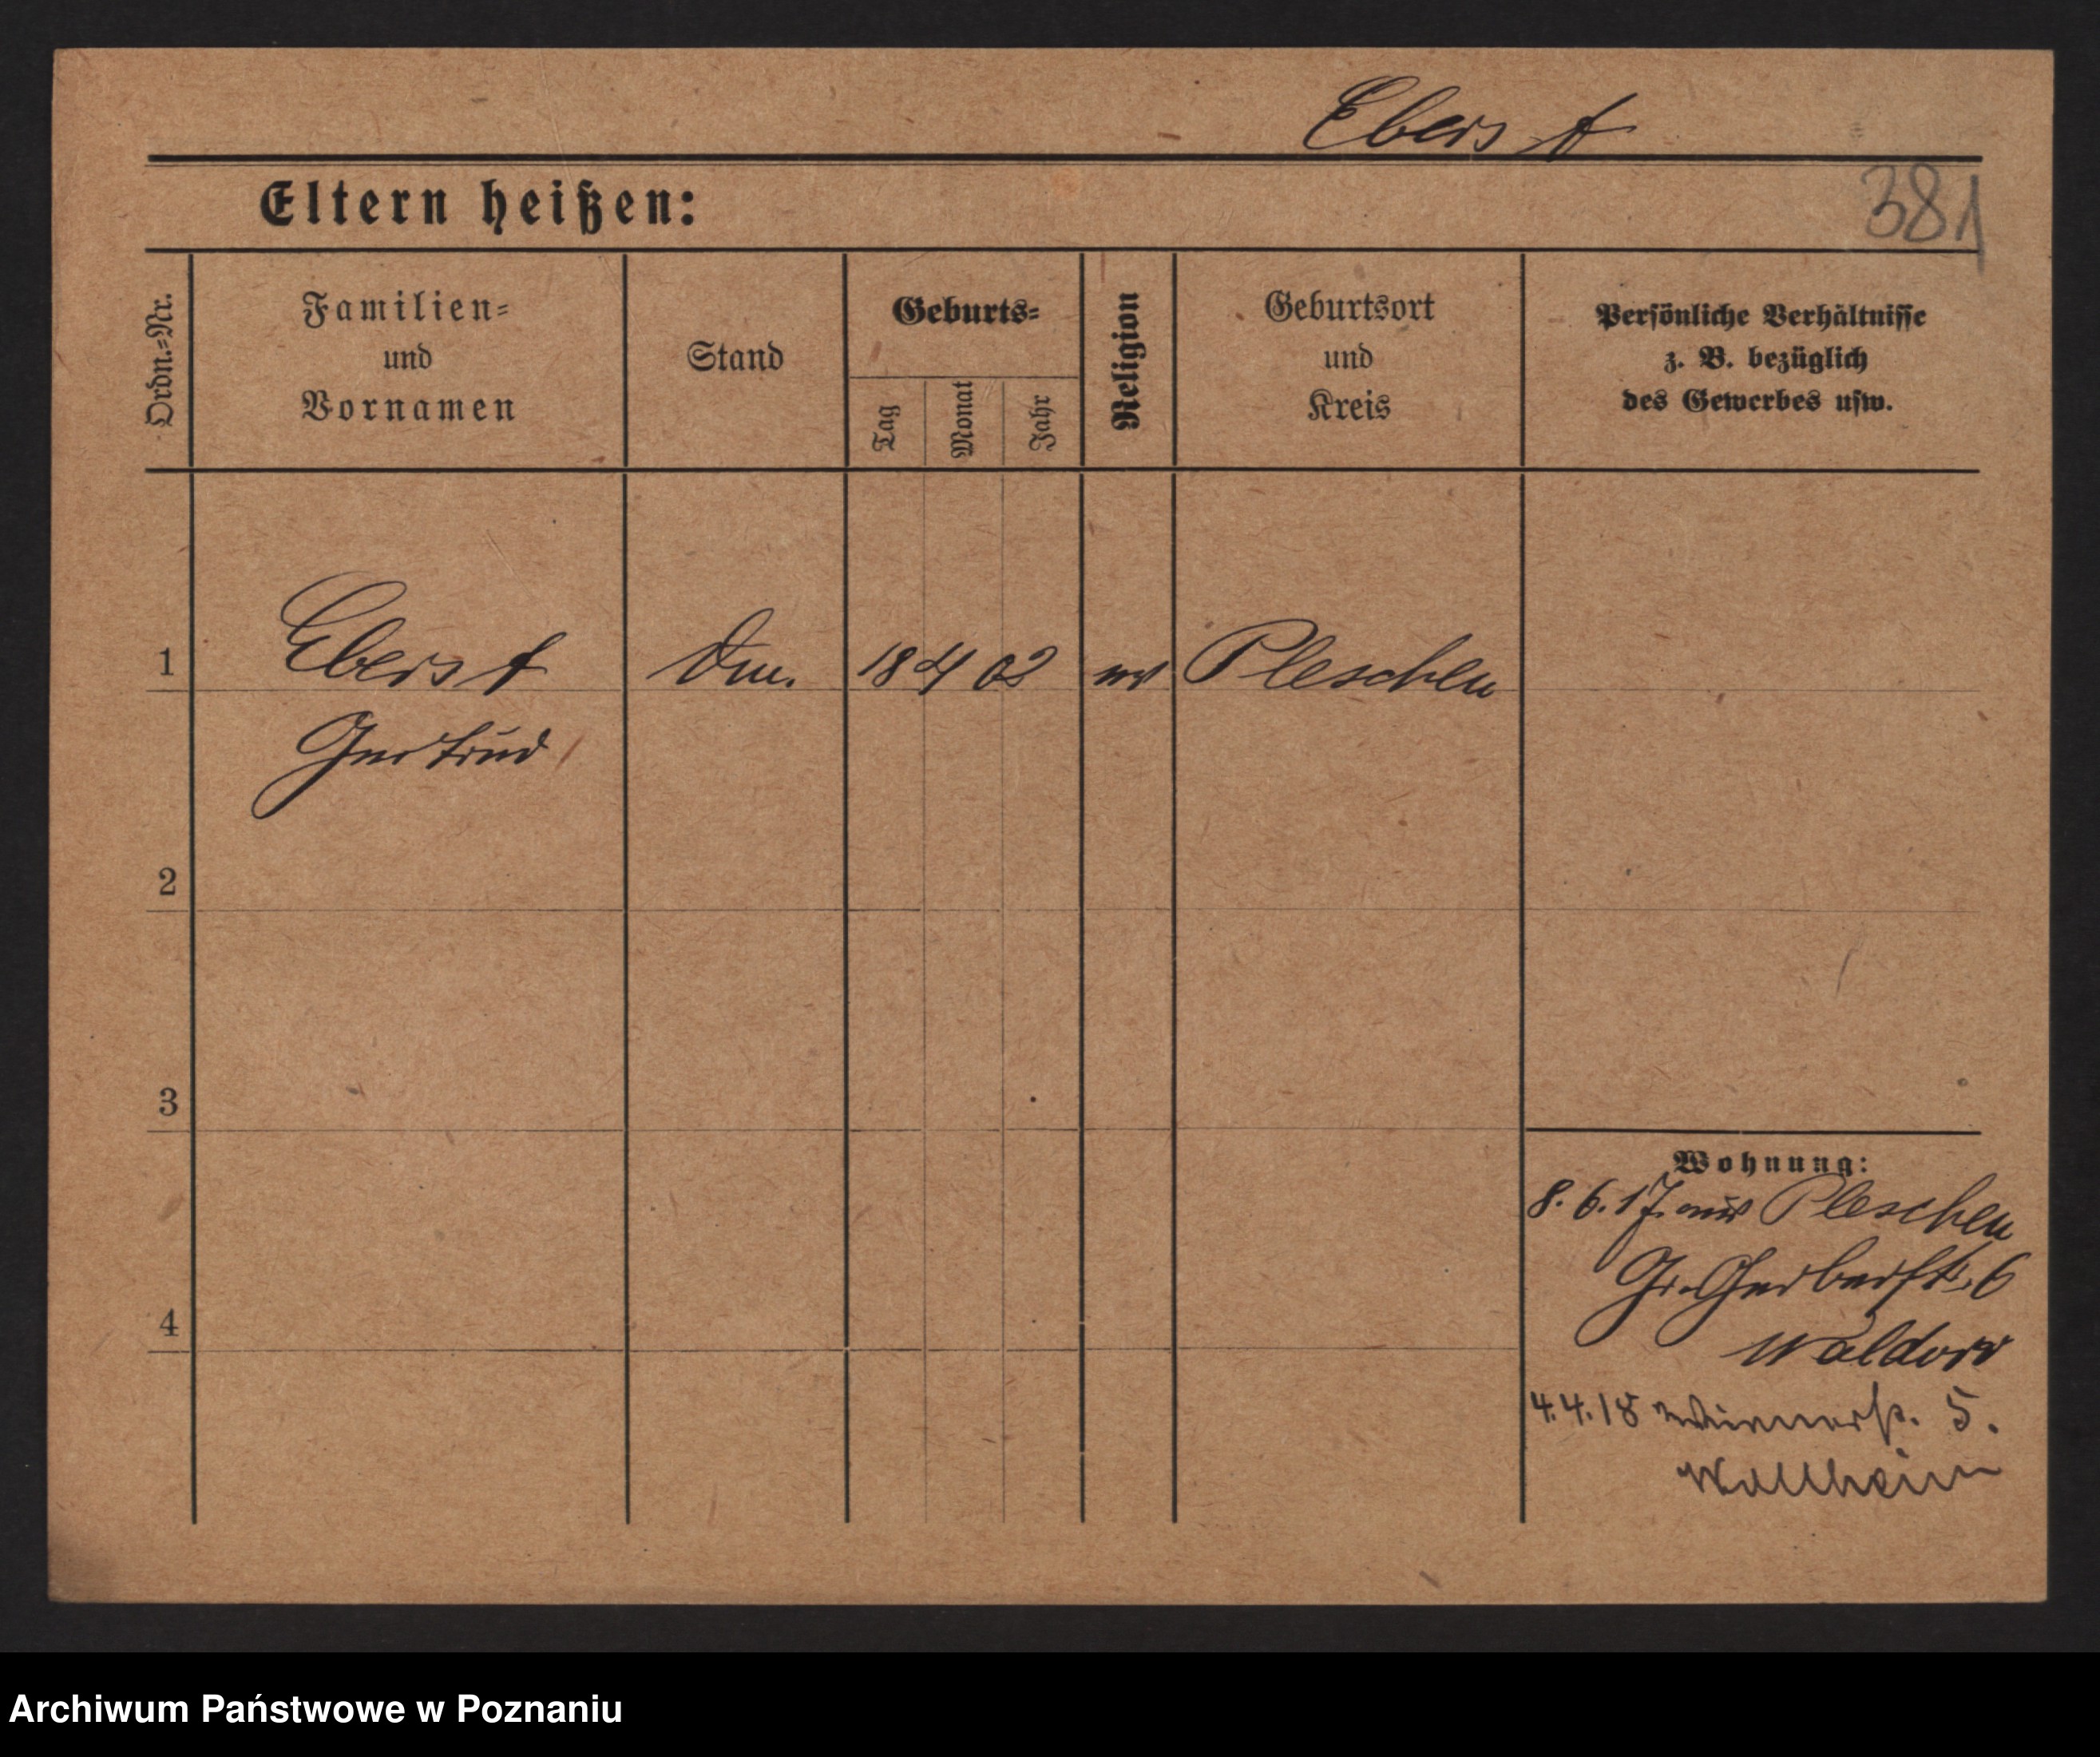 Eberst
Eltern heißen:
381
Ordn.=Nr.
Familien=
und
Vornamen
Stand
Geburts=
Tag
Monat
Jahr
Religion
Geburtsort
und
Kreis
Persönliche Verhältnisse
z. B. bezüglich
des Gewerbes usw.
1 Eberst 18 4 02 Pleschen
Gertrud
2
3
Wohnung:
8. 6. 17 aus Pleschen
Gr. Gerberstr. 6
4
4. 4. 18 5.
Wollheim
Archiwum Państwowe w Poznaniu